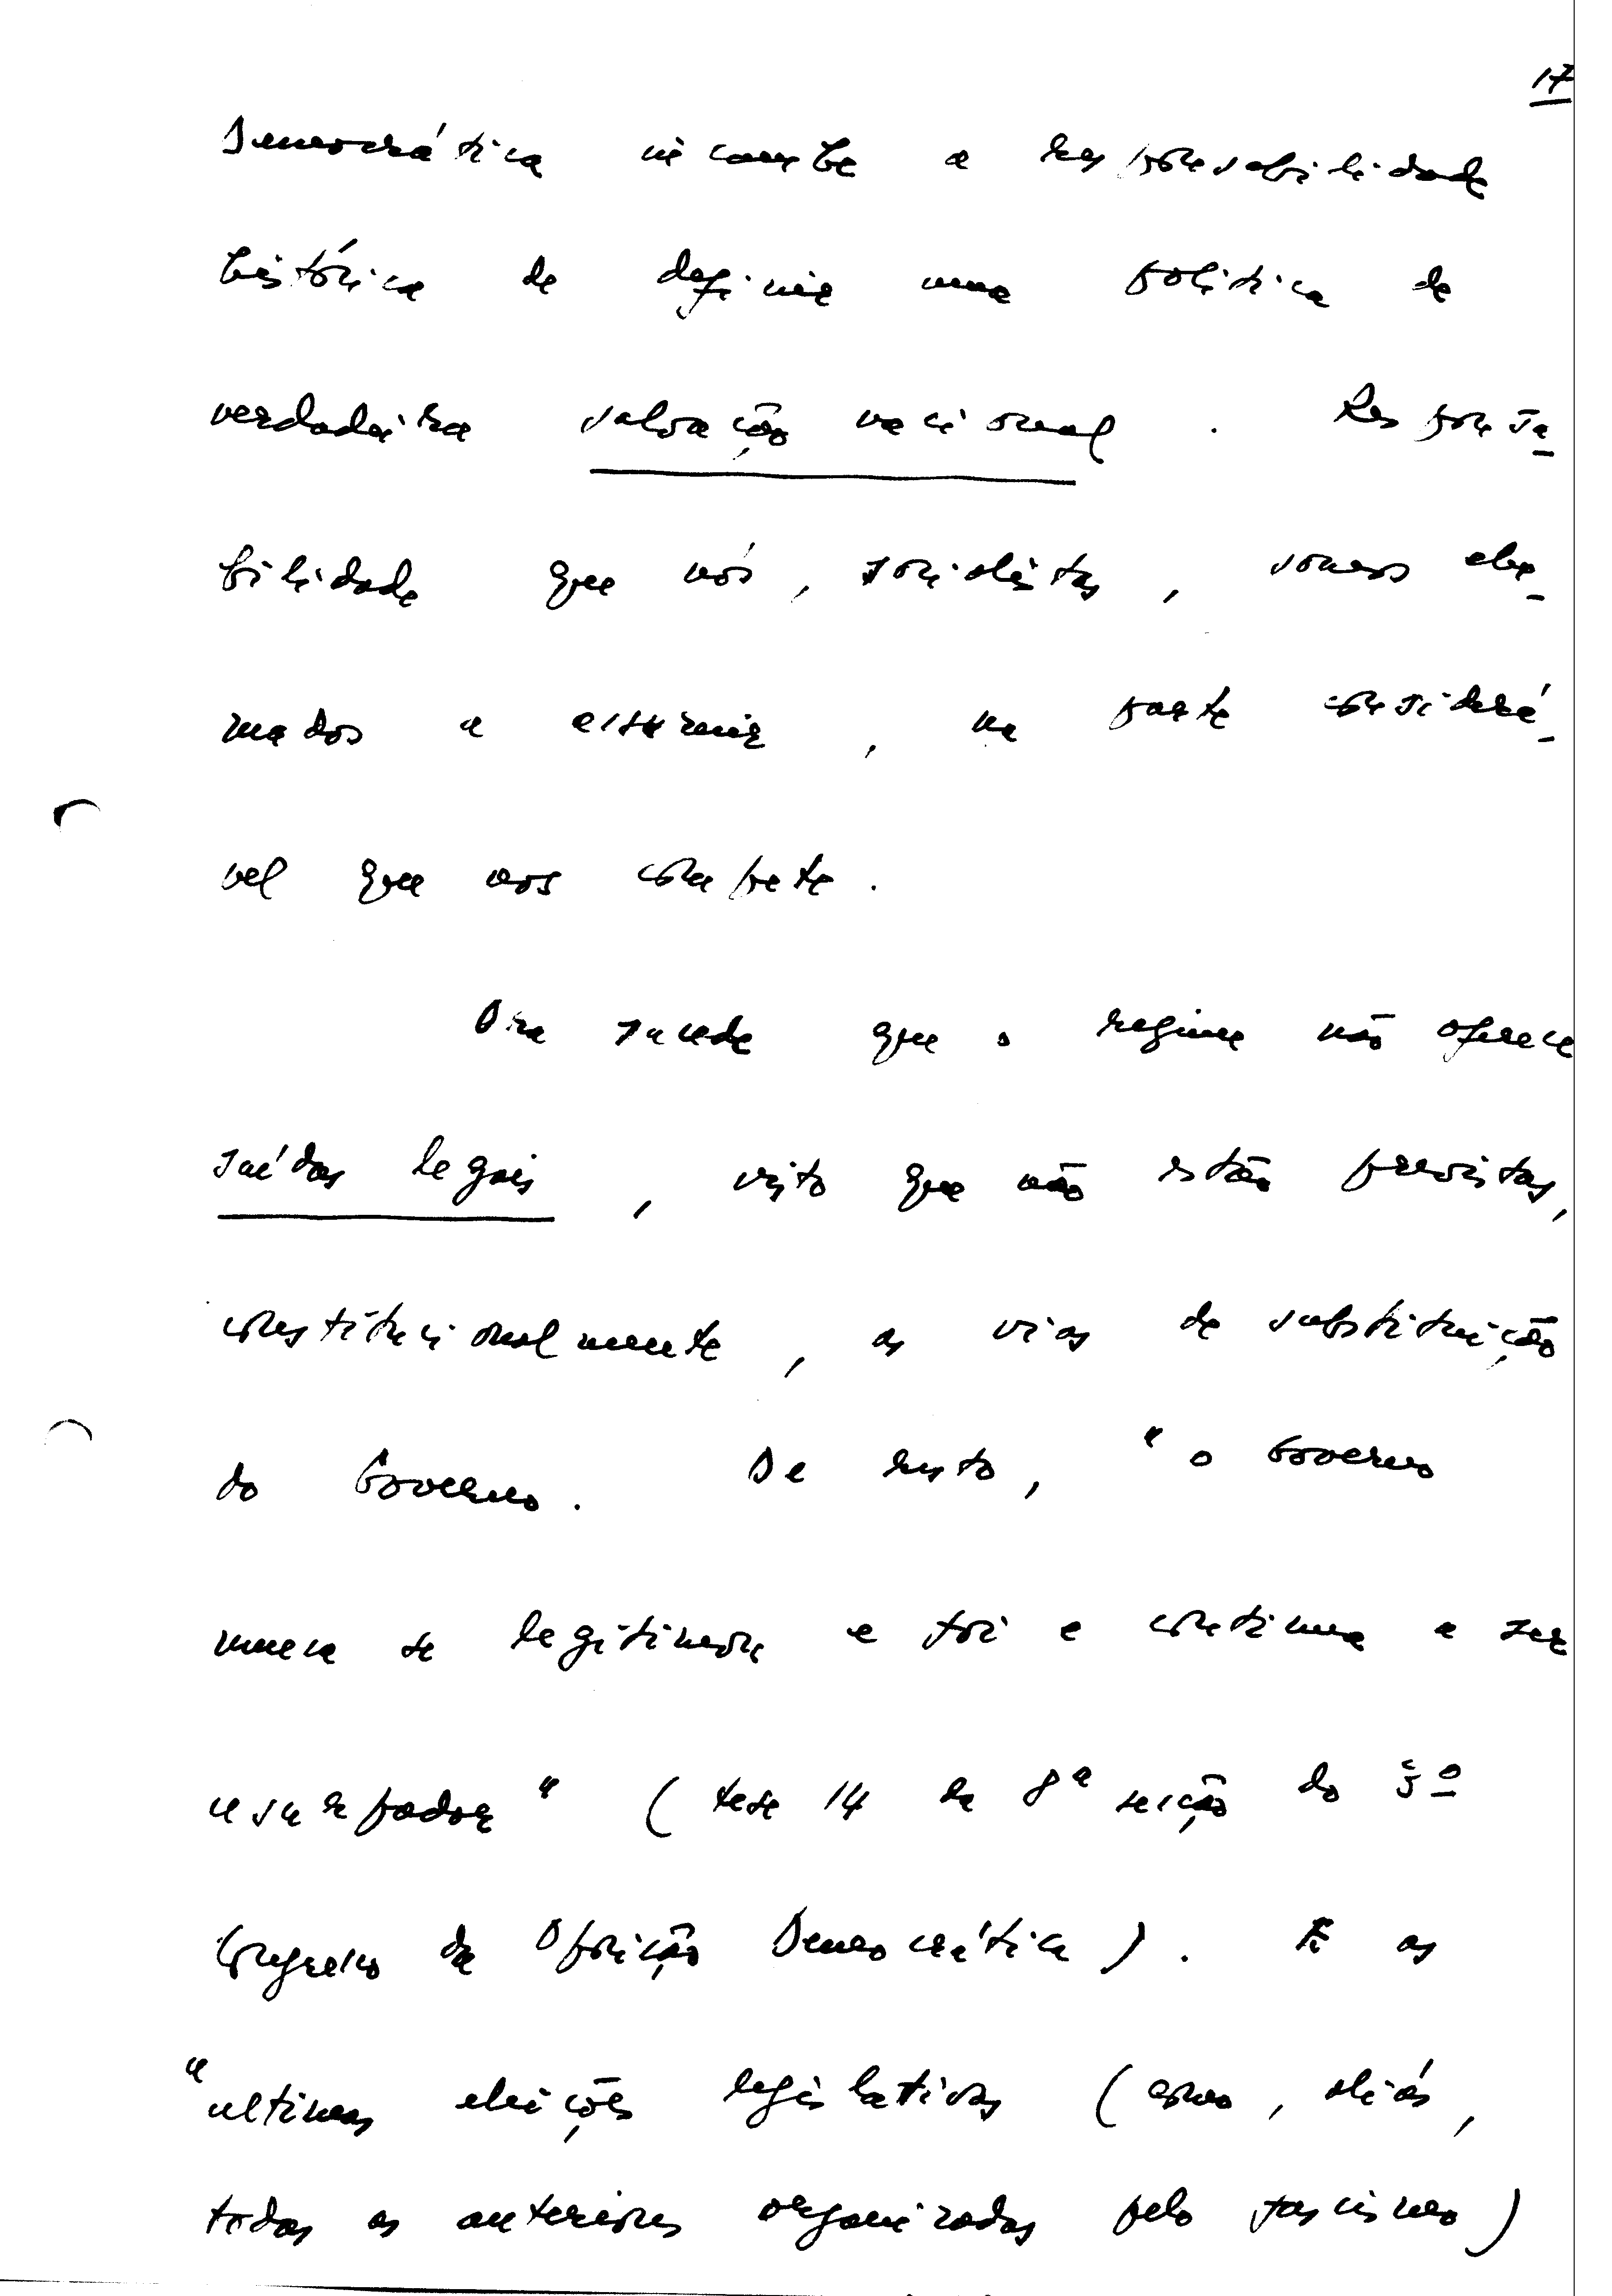 17
Democrática incumbe a responsabilidade
histórica de definir uma política de
verdadeira salvação nacional. Responsa-
bilidade que nós, socialistas, somos cha-
mados a assumir, na parte considerá-
vel que nos compete.
Ora sucede que o regime não oferece
saídas legais, visto que não estão previstas,
constitucionalmente, as vias de substituição
do Governo. De resto, "o Governo
nunca se legitimou e foi e continua a ser
usurpador" (tese 14 da 8ª secção do 3º
Congresso da Oposição Democrática). E as
"ultimas eleições legislativas (como, aliás,
todas as anteriores organizadas pelo fascismo)